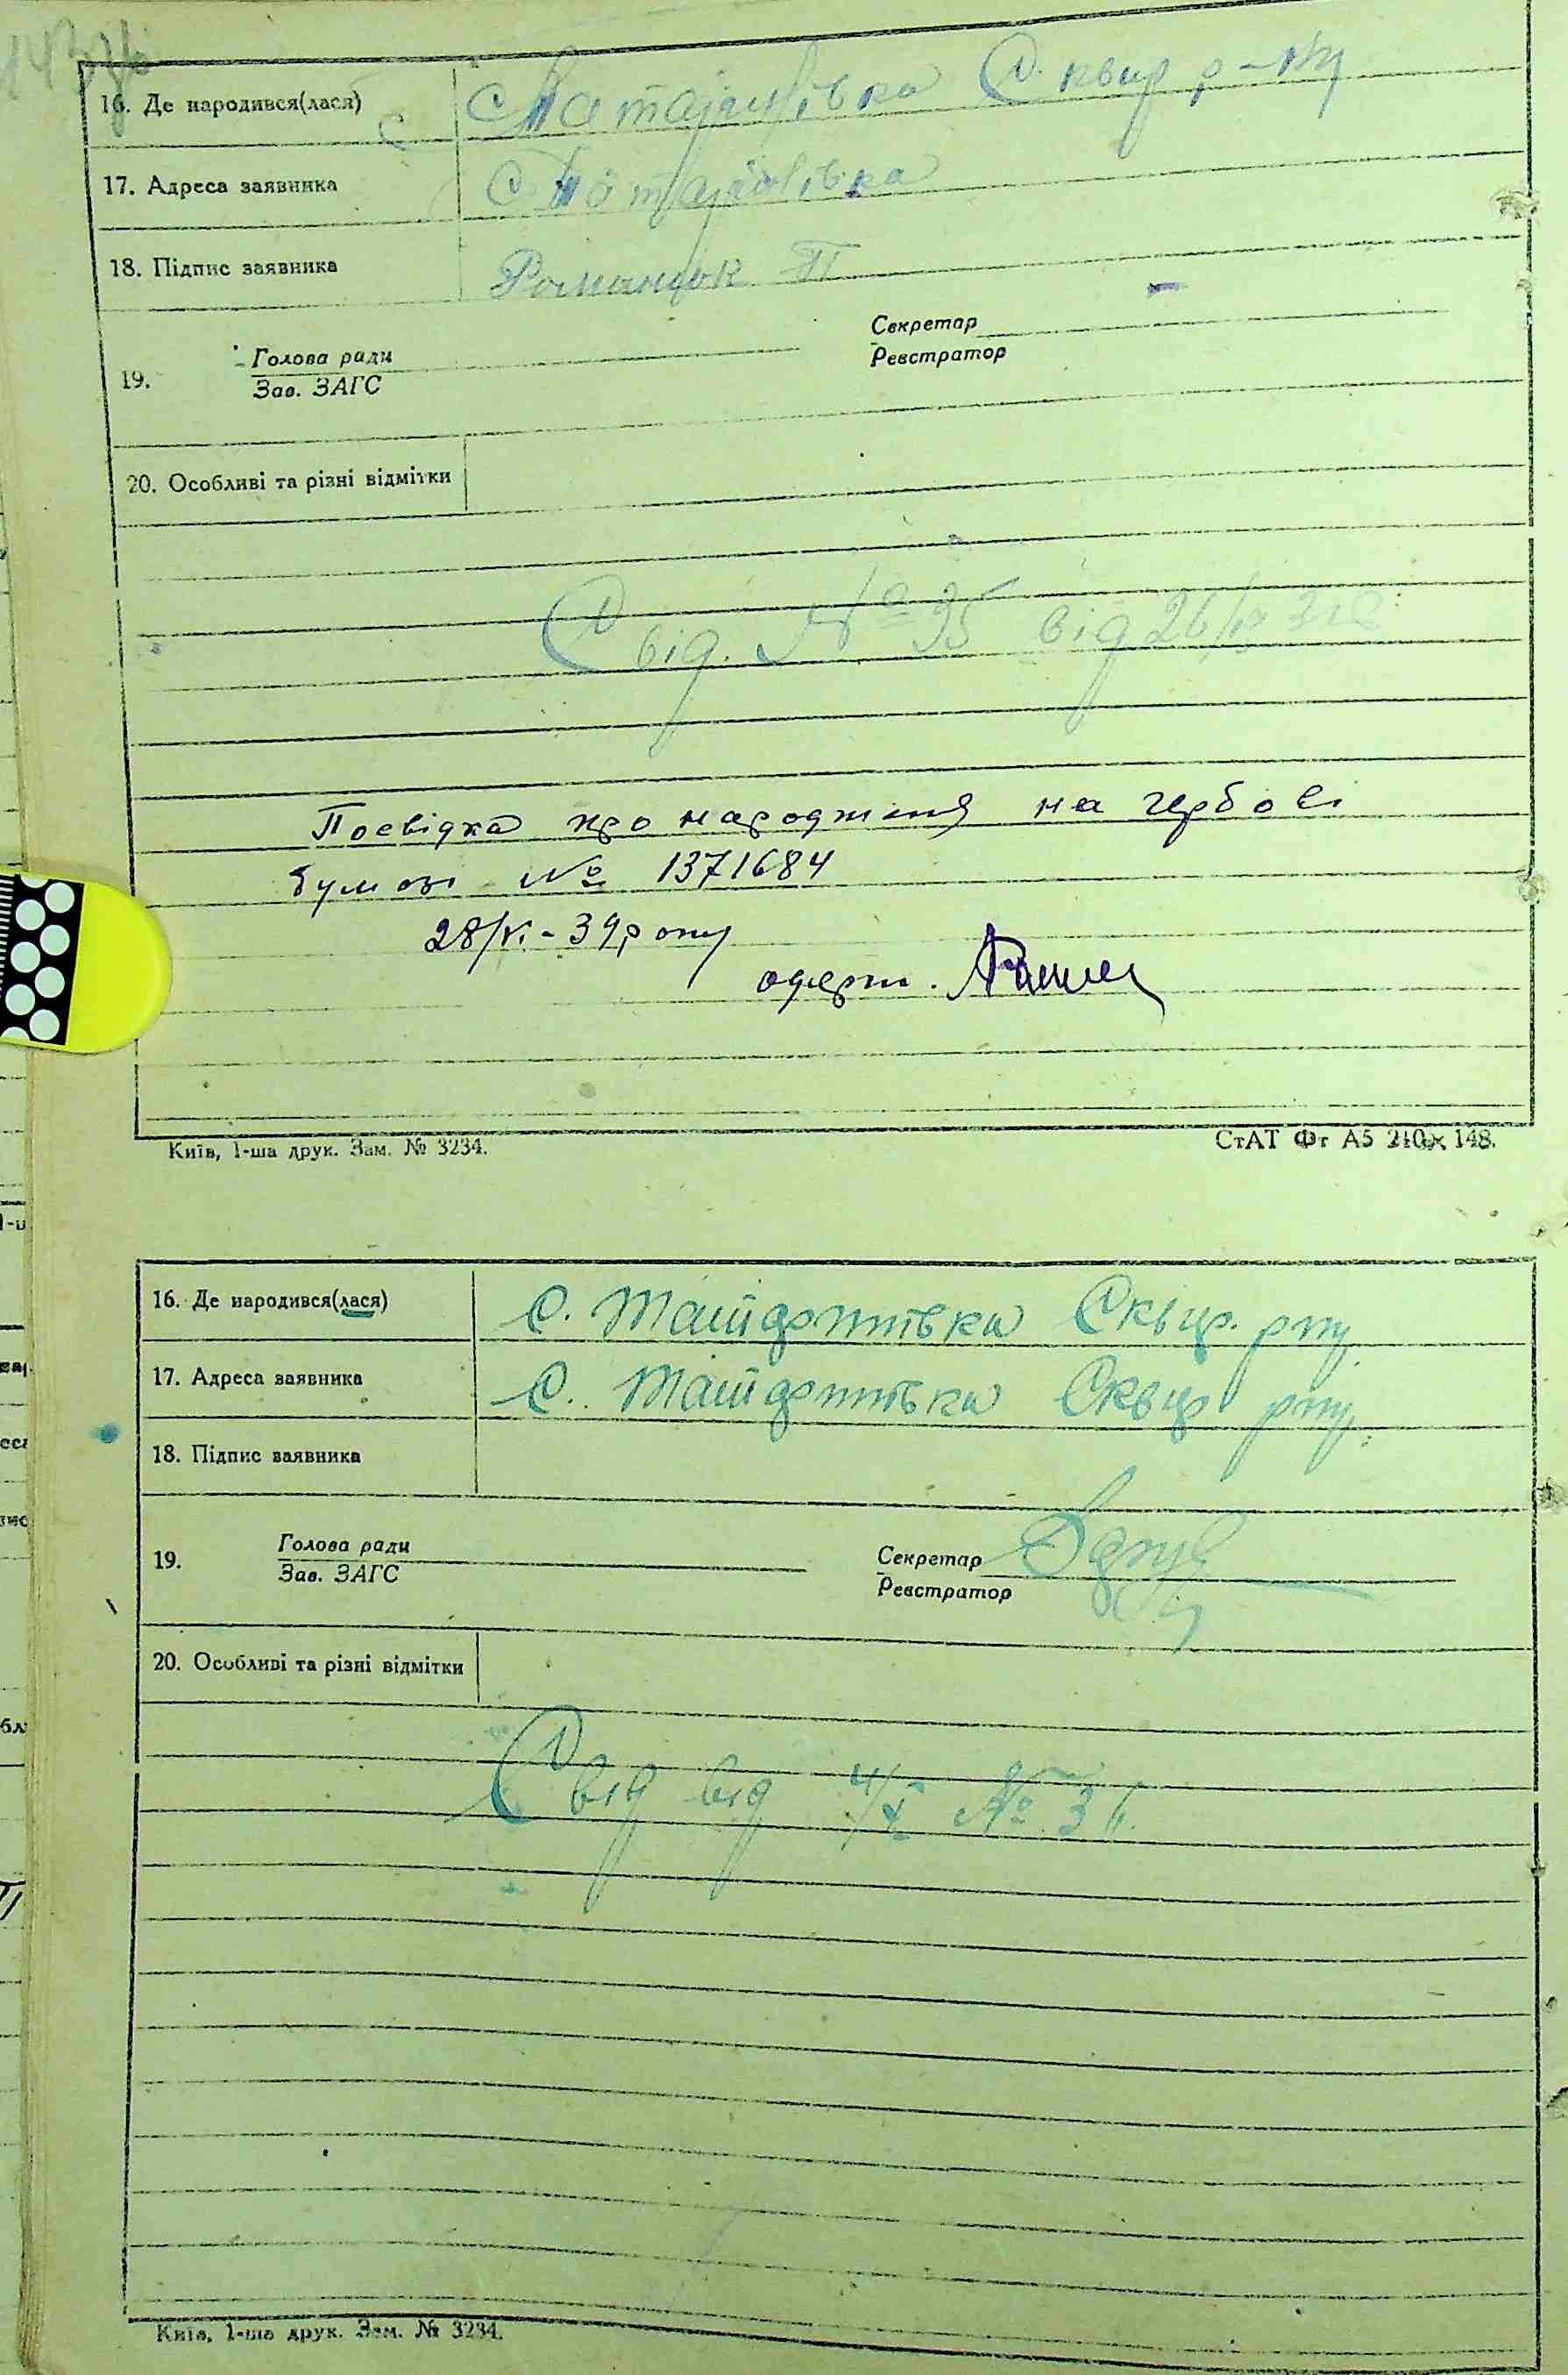 16. Де народився(лася) с Квир р-ну
17. Адреса заявника с
18. Підпис заявника Романюк П
19. Голова ради Секретар
Зав. ЗАГС Реєстратор
20. Особливі та різні відмітки
Свід. № 35 від 26/
Посвідка про народження на гербові
бумозі № 1371684
28/VI - 39 року
одерж.
Київ, 1-ша друк. Зам. № 3234. СтАТ Фт А5 210 х 148.
16. Де народився(лася) С. Сквир. р-ну
17. Адреса заявника С. Сквир р-ну
18. Підпис заявника
19. Голова ради Секретар
Зав. ЗАГС Реєстратор
20. Особливі та різні відмітки
Свід від 4/X №
Київ, 1-ша друк. Зам. № 3234.